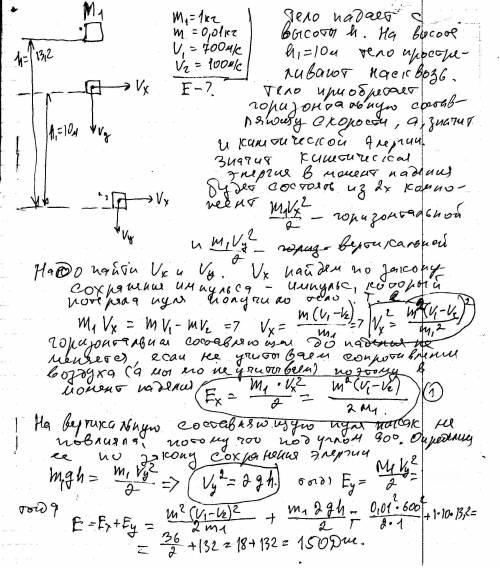 M₁
h = 13,2
h₁=10м
Vx
Vy
Vx
Vy
m₁=1кг
m = 0,01кг
V₁ = 700м/с
V₂ = 100м/с
E-?
Тело падает с
высоты h. На высоте
h₁=10м тело простре-
ливают насквозь.
Тело приобретает
горизонтальную состав-
ляющую скорости, а, значит
и кинетической энергии.
Значит кинетическая
энергия в момент падения
будет состоять из 2х компо-
нент m₁Vx²/2 - горизонтальной
и m₁Vy²/2 - вертикальной
Надо найти Vx и Vy. Vx найдем по закону
сохранения импульса - импульс, который
потеряла пуля получило тело. Т.е.
m₁Vx = mV₁ - mV₂ => Vx = m(V₁-V₂)/m₁ => Vx² = m²(V₁-V₂)²/m₁²
горизонтальная составляющая до падения не
меняется, если не учитываем сопротивление
воздуха (а мы его не учитываем) поэтому в
момент падения Ex = m₁·Vx²/2 = m²(V₁-V₂)²/2m₁ (1)
На вертикальную составляющую пуля никак не
повлияла, потому что под углом 90°. Определим
ее по закону сохранения энергии
m₁gh = m₁Vy²/2 => Vy² = 2gh. тогда Ey = M₁Vy²/2 =
тогда
E = Ex+Ey = m²(V₁-V₂)²/2m₁ + m₁2gh/2 = 0,01²·600²/2·1 + 1·10·13,2=
= 36/2 + 132 = 18 + 132 = 150Дж.